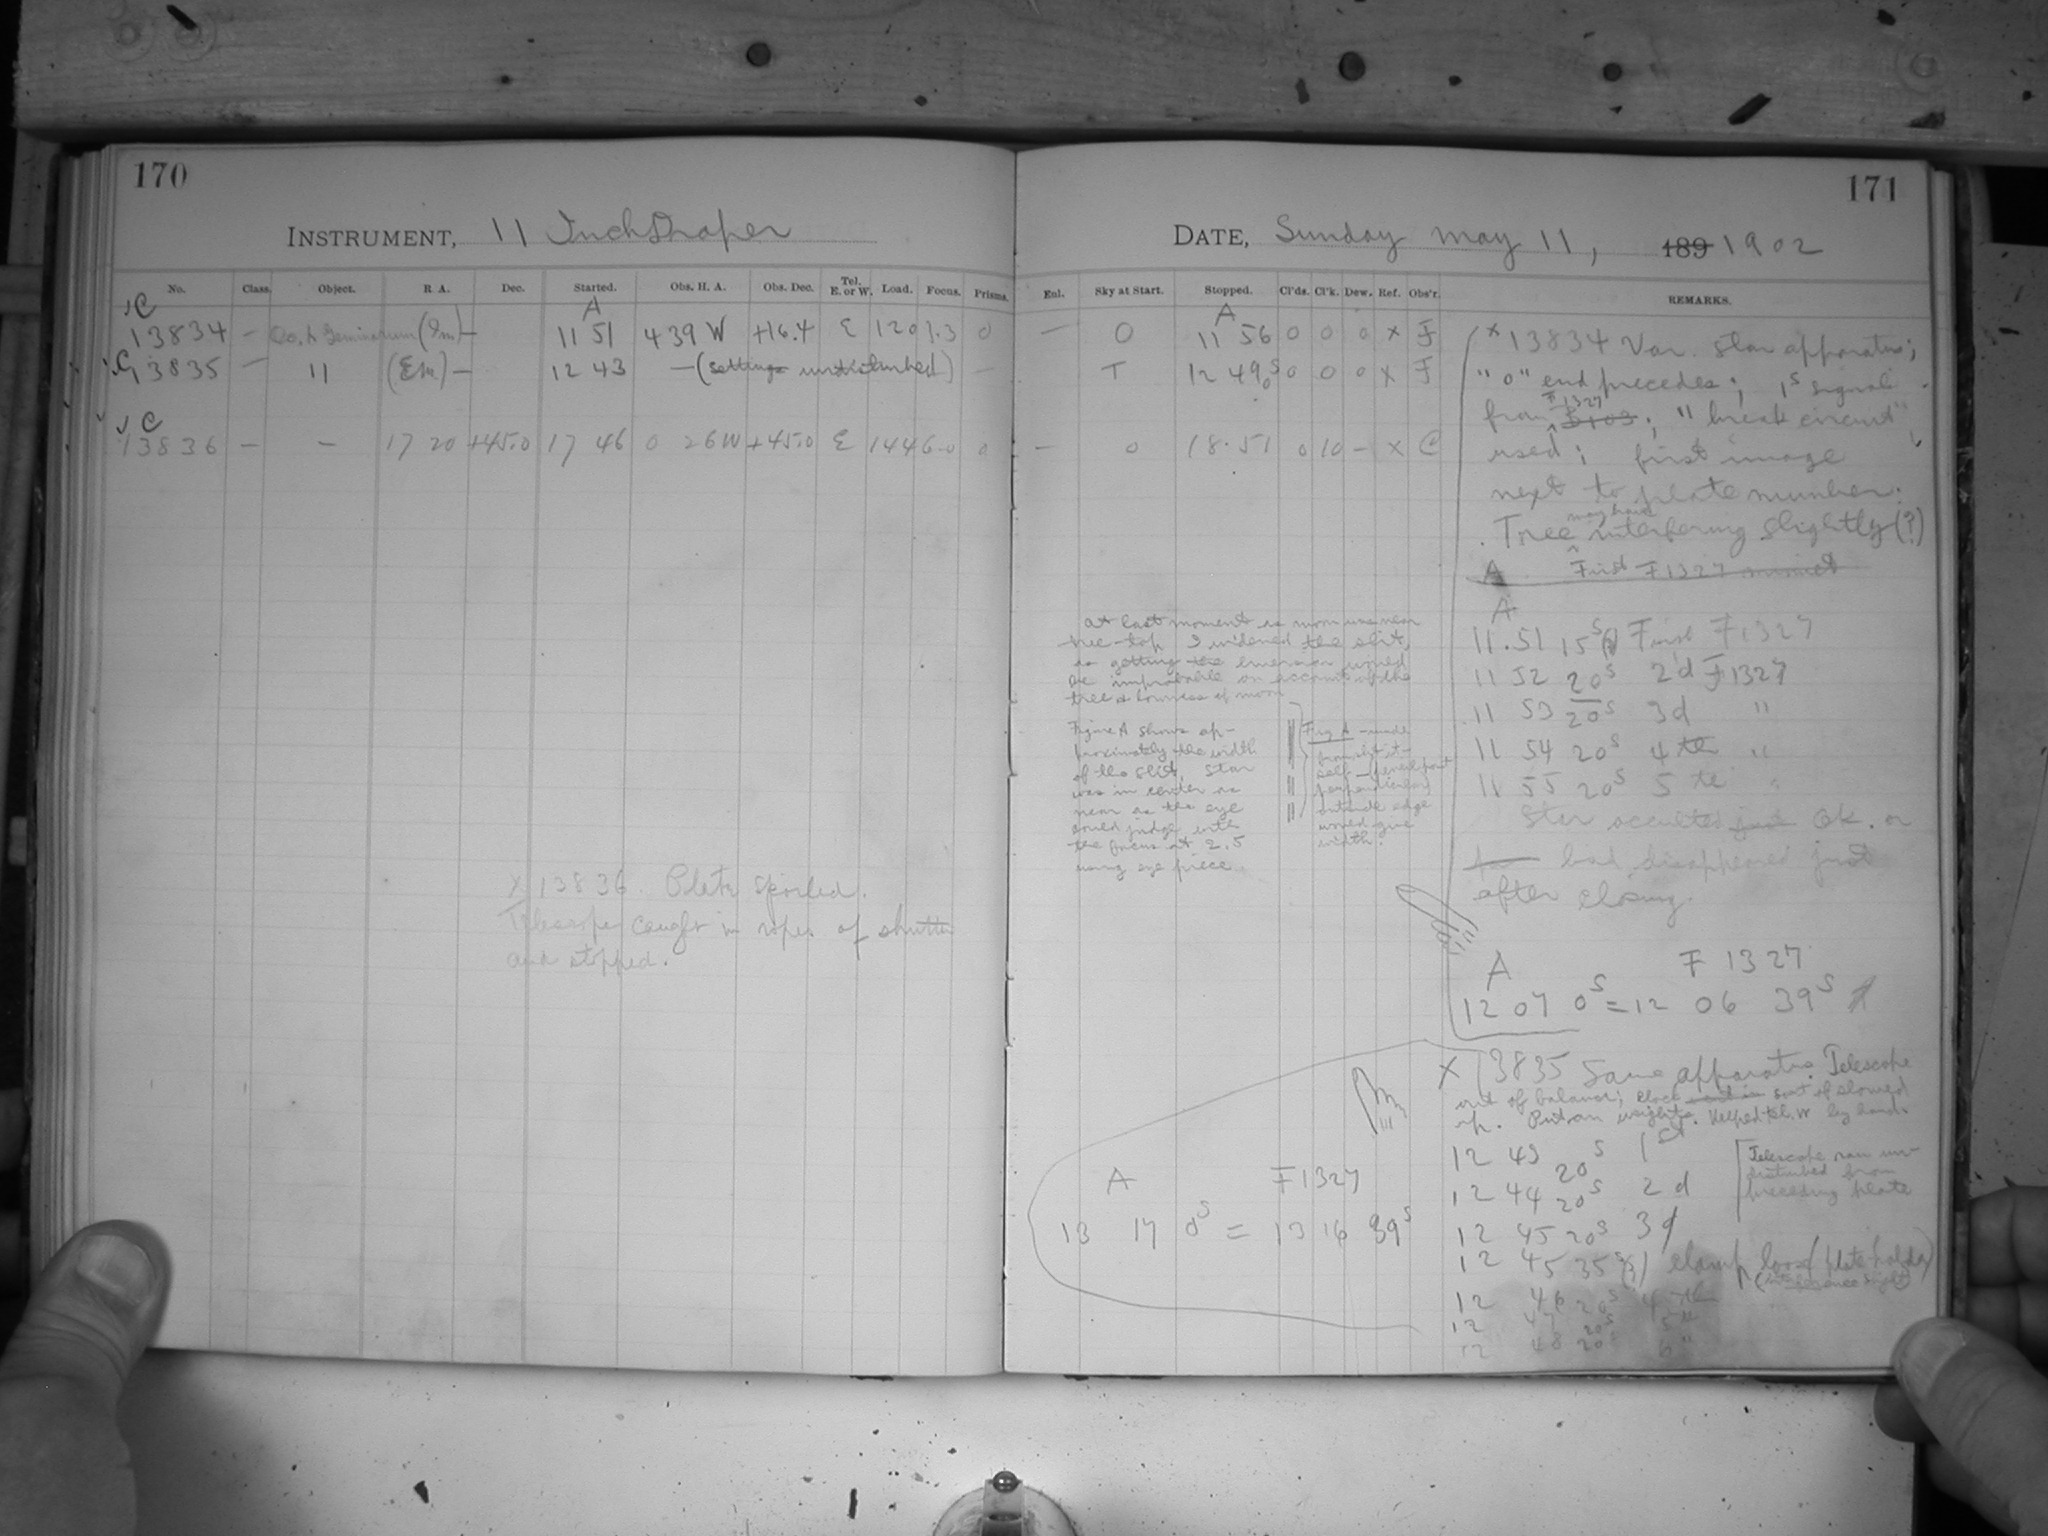 170
INSTRUMENT, 11 Inch Draper
No. Class. Object. R. A. Dec. Started. Obs. H. A. Obs. Dec. Tel. E. or W. Load. Focus. Prisms.
C A
13834 — Oc. λ Geminorum (Im) — 11 51 4 39 W +16.4 E 120 1.3 0
C 13835 — 11 (Em) — 12 43 — (settings undisturbed) —
C
13836 — — 17 20 +45.0 17 46 0 26 W +45.0 E 144 6.0 0
X 13836. Plate spoiled.
Telescope caught in ropes of shutter
and stopped.
171
DATE, Sunday May 11, 189 1902
Enl. Sky at Start. Stopped. Cl'ds. Cl'k. Dew. Ref. Obs'r. REMARKS.
A
— 0 11 56 0 0 0 x F
T 12 49 0s 0 0 0 x F
— 0 18.51 0 10 — x C
x 13834 Var. star apparatus;
"0" end precedes; 1s signal
F 1327
from ; "break circuit"
used; first image
next to plate number.
may have
Tree interfering slightly (?)
A First F1327 minut
A
11.51 15s First F1327
11 52 20s 2d F1327
11 53 20s 3d "
11 54 20s 4th "
11 55 20s 5th "
Star occulted just OK. or
had disappeared just
after closing.
A F 1327
12 07 0s = 12 06 39s
at last moment as moon was near
tree-top I widened the slit,
as getting the emersion would
be improbable on account of the
tree & lowness of moon
Figure A shows ap-
proximately the width
of the slit, star
was in center as
near as the eye
could judge with
the focus at 2.5
using eye piece.
Fig A - made
from slit it-
self - (pencil point
perpendicular)
outside edge
would give
width.
X 13835 Same apparatus. Telescope
out of balance; clock sort of slowed
up. Put on weights. Helped tel. W by hand.
12 43 20s 1st
12 44 20s 2d
12 45 20s 3d
12 45 35s (?) clamp loose (plate-holder)
(interference slight)
12 46 20s 4th
12 47 20s 5"
12 48 20s 6"
Telescope ran un-
disturbed from
preceding plate
A F1327
13 17 0s = 13 16 39s